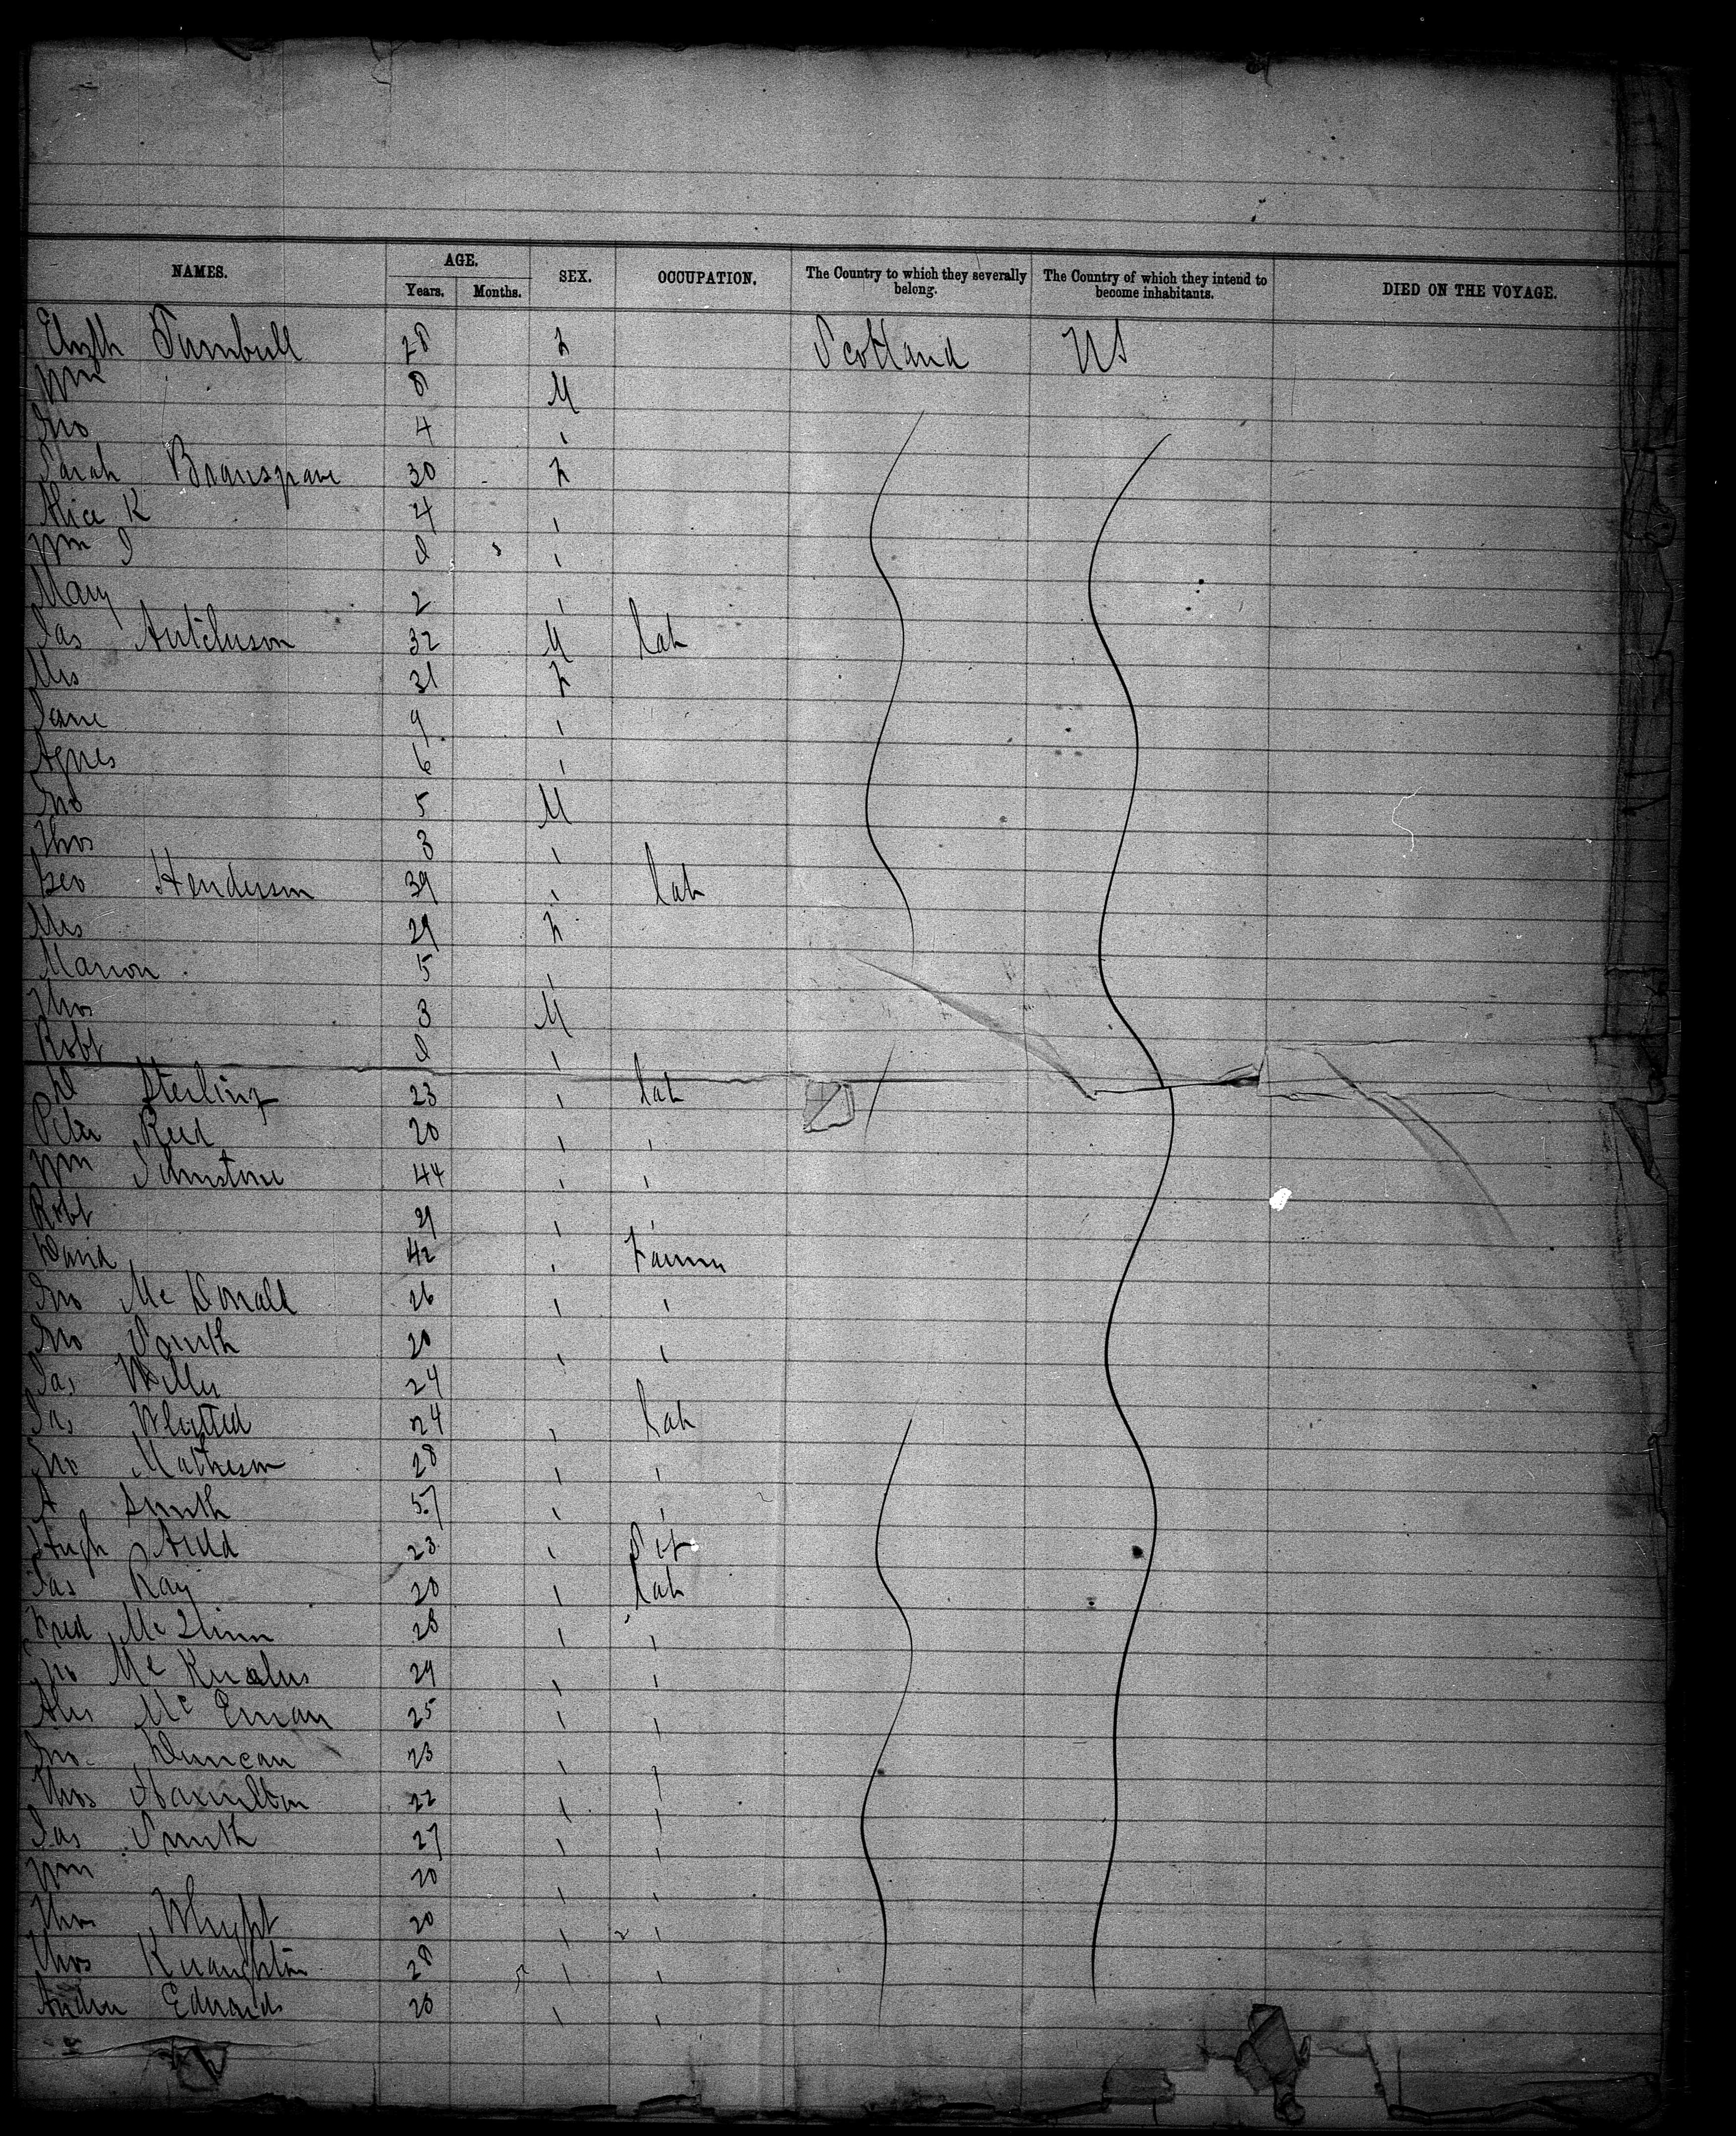 NAMES. AGE. Years. Months. SEX. OCCUPATION. The Country to which they severally belong. The Country of which they intend to become inhabitants. DIED ON THE VOYAGE.
Turnbull 28 F Scotland US
Wm 8 M
Jno 4 "
Sarah 30 F
Alice K 4 "
Wm J "
Mary 2 "
Jas Hutchison 32 M lab
Mrs 31 F
Jane 9 "
Agnes 6 "
Jno 5 M
Thos 3 "
Geo Henderson 39 " lab
Mrs 29 F
Marion 5 "
Thos 3 M
Robt "
Sterling 23 " lab
Peter Reid 20 " "
Wm Johnstone 44 " "
Robt 21 " "
David 42 " Farmer
Jno McDonald 26 " "
Jno Smith 20 " "
Jas 24
Jas 24 " lab
Jno Matheson 28 " "
A Smith 57 " "
Hugh Auld 23 "
Jas Ray 20 " lab
Fred 28 " "
Jno 29 " "
25 " "
Jno Duncan 23 " "
Thos Hamilton 22 " "
Jas Smith 27 " "
Wm 20 " "
Thos 20 " "
Thos 28 " "
Andrew Edwards 20 " "